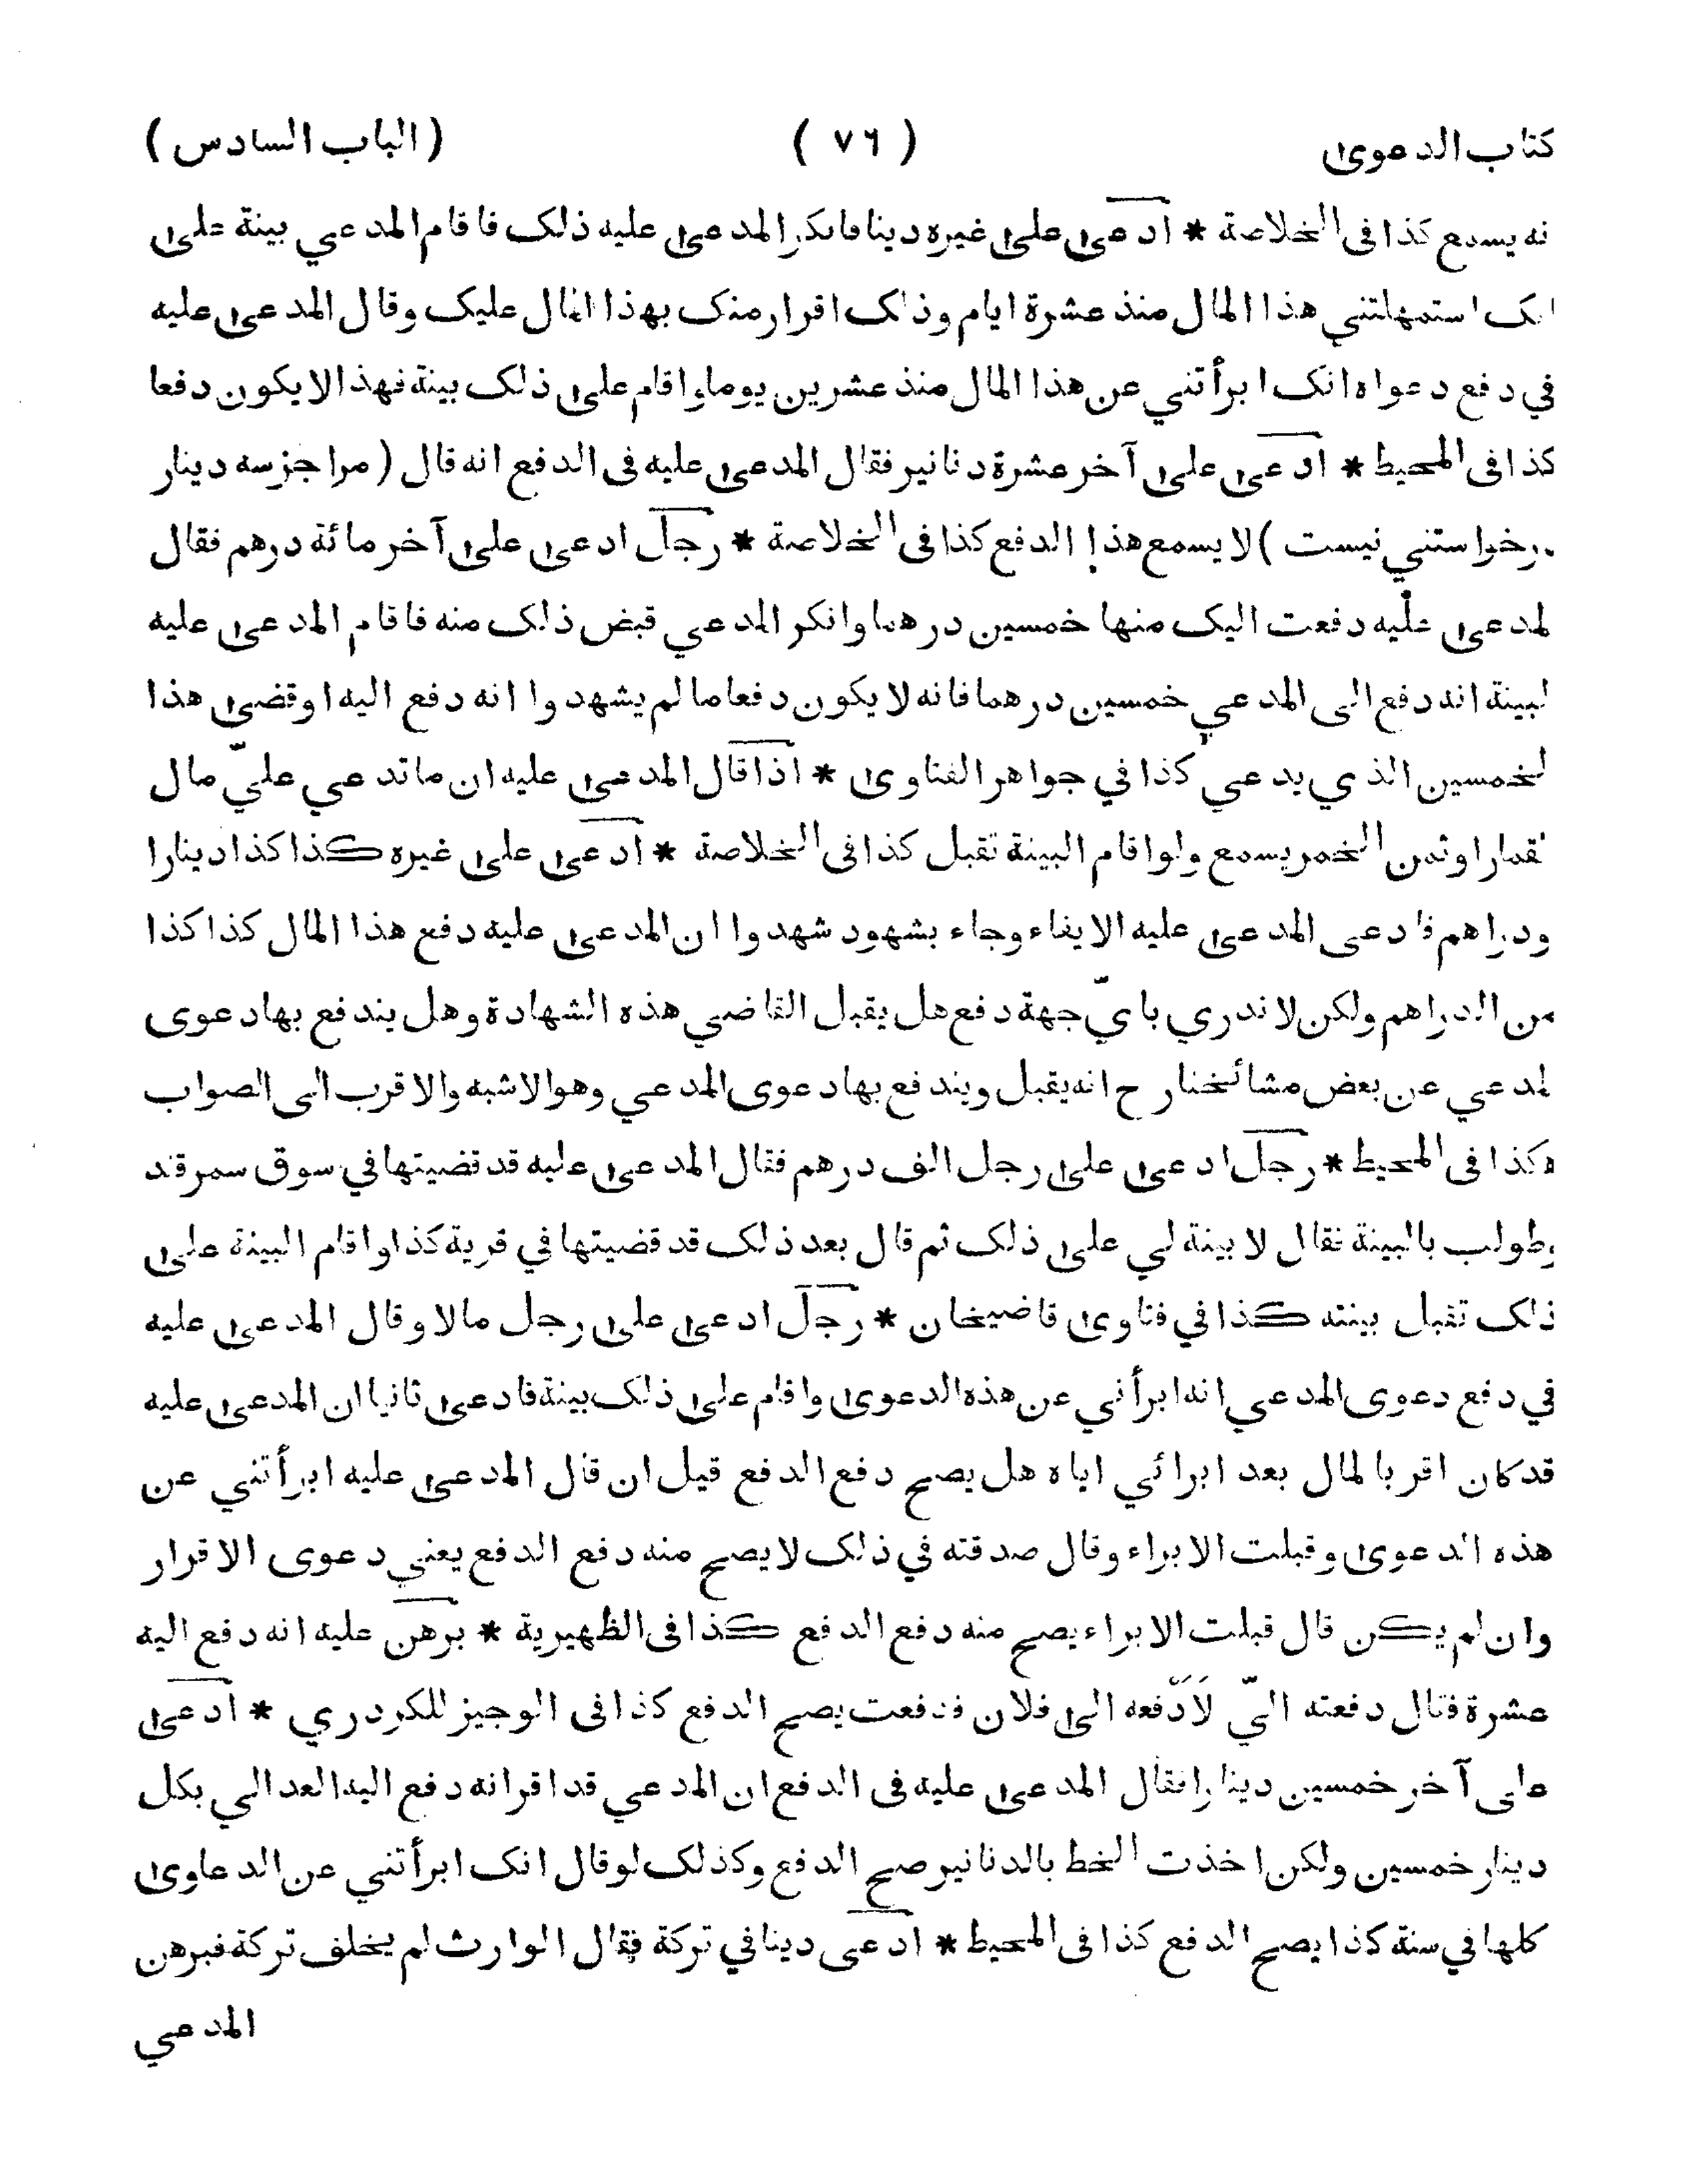 كتاب الدعوى ( ٧٦ ) ( الباب السادس )
نه يسمع كذا فى الخلاصة * ادعى على غيره دينا فانكر المدعى عليه ذلك فاقام المدعي بينة على
انك استمهلتني هذا المال منذ عشرة ايام وذلك اقرار منك بهذا المال عليك وقال المدعى عليه
في دفع دعواه انك ابرأتني عن هذا المال منذ عشرين يوما واقام على ذلك بينة فهذا لا يكون دفعا
كذا فى المحيط * ادعى على آخر عشرة دنانير فقال المدعى عليه فى الدفع انه قال ( مرا جز سه دينار
درخواستني نيست ) لا يسمع هذا الدفع كذا فى الخلاصة * رجل ادعى على آخر مائة درهم فقال
لمدعى عليه دفعت اليك منها خمسين درهما وانكر المدعي قبض ذلك منه فاقام المدعى عليه
لبينة انه دفع الى المدعي خمسين درهما فانه لا يكون دفعا ما لم يشهدوا انه دفع اليه او قضى هذا
لخمسين الذي يدعي كذا في جواهر الفتاوى * اذا قال المدعى عليه ان ما تدعي عليّ مال
لقمار او ثمن الخمر يسمع ولو اقام البينة تقبل كذا فى الخلاصة * ادعى على غيره كذا كذا دينارا
ودراهم فادعى المدعى عليه الايفاء وجاء بشهود شهدوا ان المدعى عليه دفع هذا المال كذا كذا
من الدراهم ولكن لا ندري باىّ جهة دفع هل يقبل القاضي هذه الشهادة وهل يندفع بها دعوى
لمدعي عن بعض مشائخنا رح انه يقبل ويندفع بها دعوى المدعي وهو الاشبه والاقرب الى الصواب
هكذا فى المحيط * رجل ادعى على رجل الف درهم فقال المدعى عليه قد قضيتها في سوق سمرقند
وطولب بالبينة فقال لا بينة لي على ذلك ثم قال بعد ذلك قد قضيتها في قرية كذا واقام البينة على
ذلك تقبل بينته كذا في فتاوى قاضيخان * رجل ادعى على رجل مالا وقال المدعى عليه
في دفع دعوى المدعي انه ابرأني عن هذه الدعوى واقام على ذلك بينة فادعى ثانيا ان المدعى عليه
قد كان اقر بالمال بعد ابرائي اياه هل يصح دفع الدفع قيل ان قال المدعى عليه ابرأتني عن
هذه الدعوى وقبلت الابراء وقال صدقته في ذلك لا يصح منه دفع الدفع يعني دعوى الاقرار
وان لم يكن قال قبلت الابراء يصح منه دفع الدفع كذا فى الظهيرية * برهن عليه انه دفع اليه
عشرة فقال دفعته اليّ لَادَّفعه الى فلان فدفعت يصح الدفع كذا فى الوجيز للكردري * ادعى
على آخر خمسين دينارا فقال المدعى عليه فى الدفع ان المدعي قد اقر انه دفع اليه العدالي بكل
دينار خمسين ولكن اخذت الخط بالدنانير صح الدفع وكذلك لو قال انك ابرأتني عن الدعاوى
كلها في سنة كذا يصح الدفع كذا فى المحيط * ادعى دينا في تركة فقال الوارث لم يخلف تركة فبرهن
المدعي